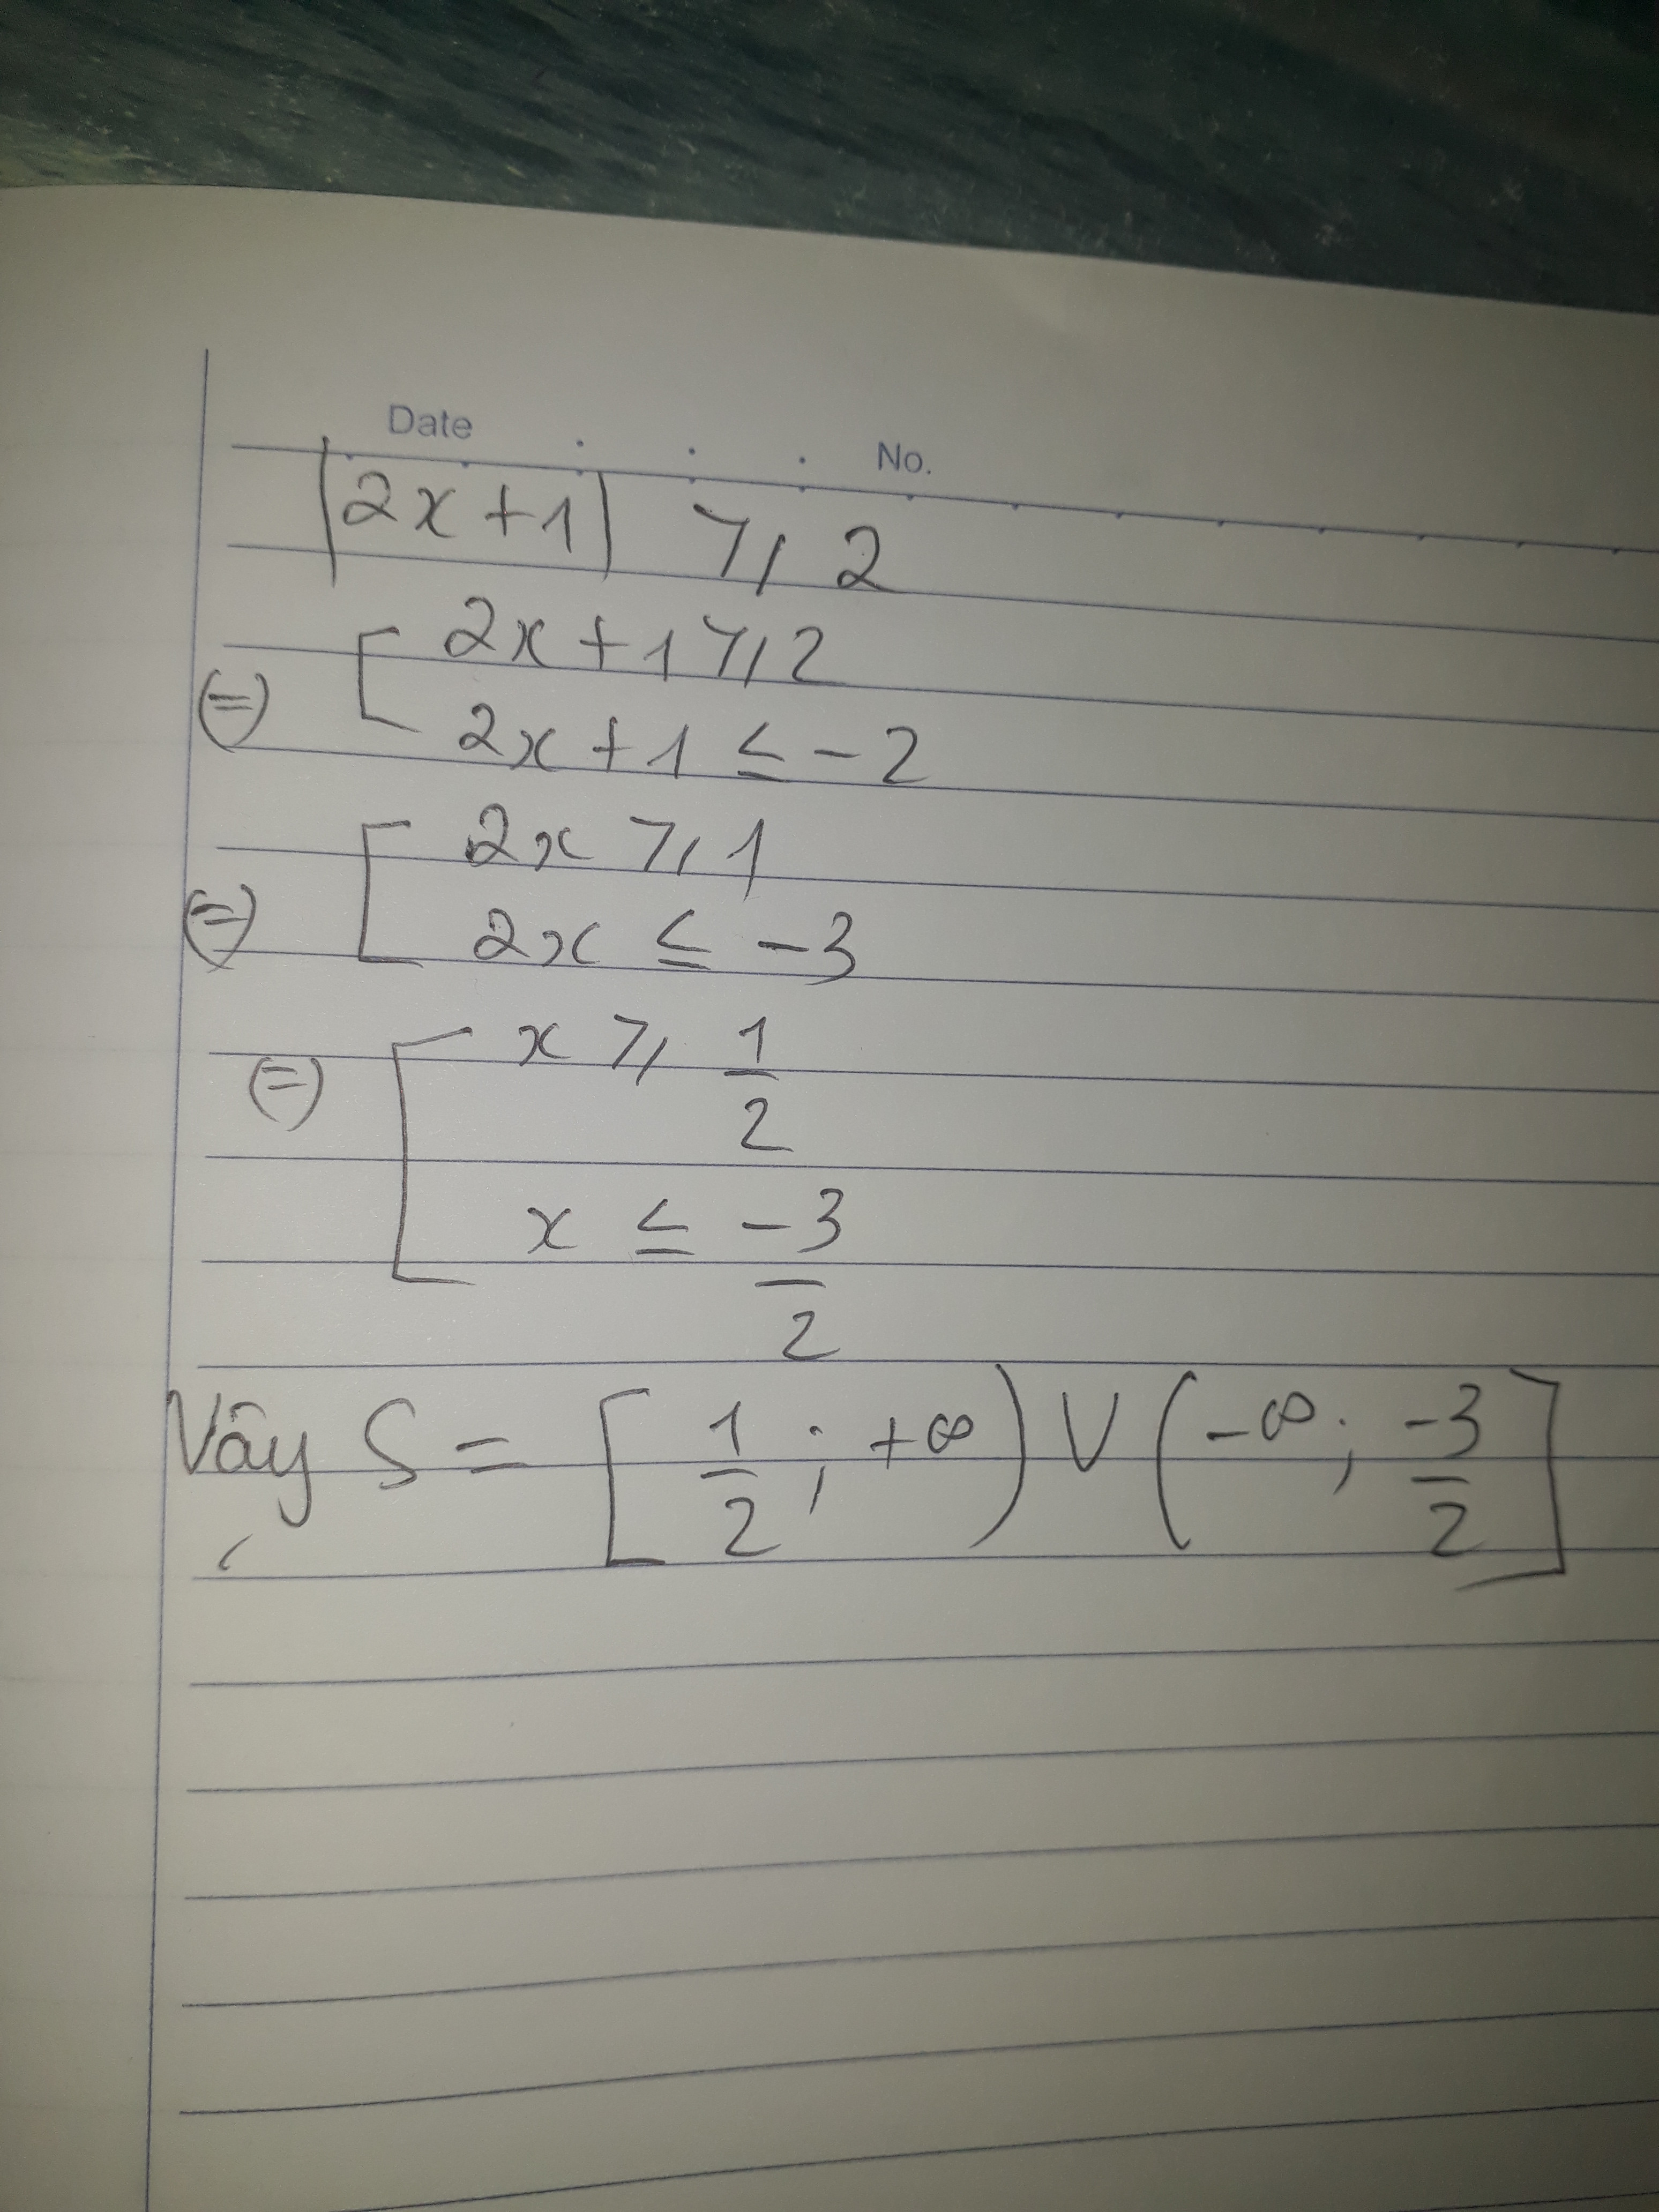 Date No.
|2x+1| ⩾ 2
⇔ [ 2x+1 ⩾ 2
2x+1 ≤ -2
⇔ [ 2x ⩾ 1
2x ≤ -3
⇔ [ x ⩾ 1/2
x ≤ -3/2
Vậy S = [1/2; +∞) ∪ (-∞; -3/2]